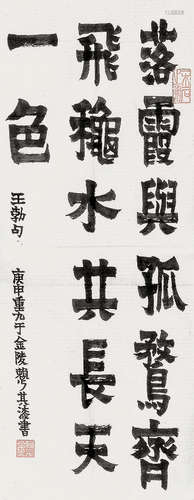 落霞與孤鶩齊
飛穐水共長天
一色
王勃句
庚申重九于金陵其漆書